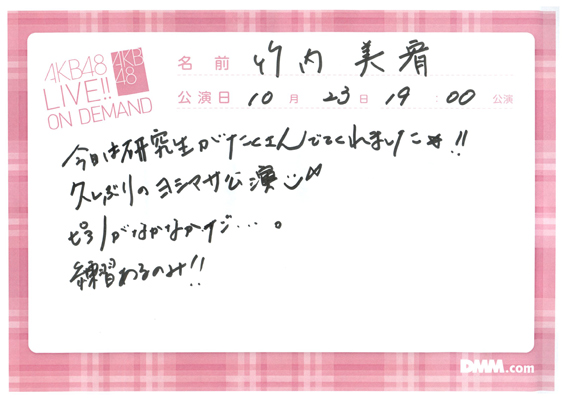 AKB48
LIVE!!
ON DEMAND
AKB
48
名前 竹内 美宥
公演日 10月 23日 19:00 公演
今日は研究生がたくさんでてくれました★!!
久しぶりのヨシマサ公演
がなかなか…。
練習あるのみ!!
DMM.com